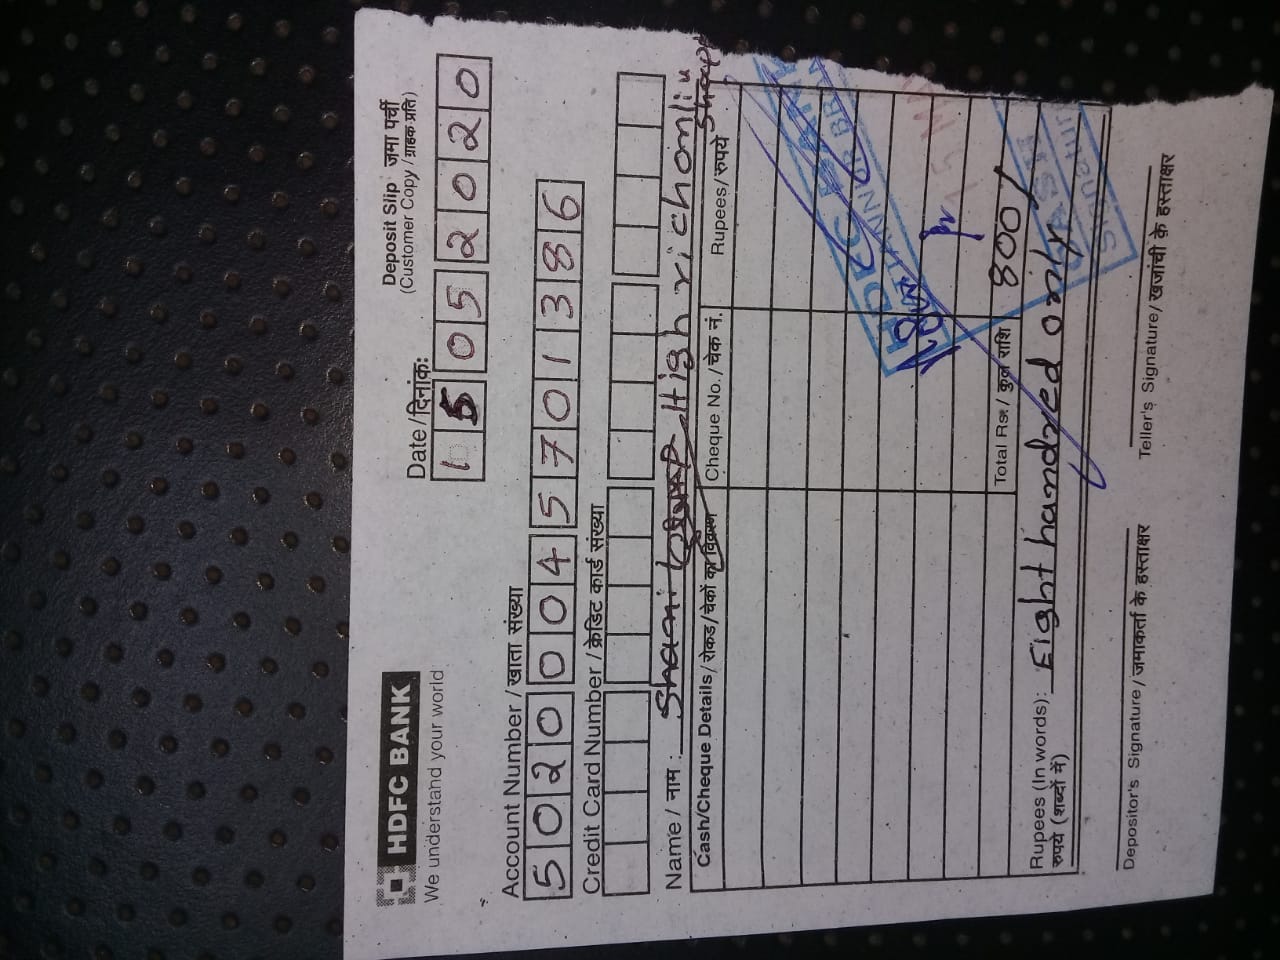 HDFC BANK
We understand your world
Deposit Slip जमा पर्ची
(Customer Copy / ग्राहक प्रति)
Date / दिनांकः
15 05 2020
Account Number / खाता संख्या
5020 004 5701386
Credit Card Number / क्रेडिट कार्ड संख्या
Name / नाम : High richonlin
Shope
Cash/Cheque Details / रोकड / चेकों का विवरण Cheque No. / चेक नं. Rupees / रुपये
HDFC BANK
ATTANNUR BRAN
15 MAY
Total Rs. / कुल राशि 800/
Rupees (In words): Eight handred only
रुपये (शब्दों में)
CASH
Signature
Depositor's Signature / जमाकर्ता के हस्ताक्षर
Teller's Signature / खजांची के हस्ताक्षर